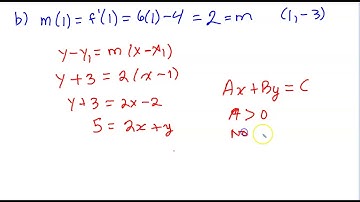 b) m(1) = f'(1) = 6(1) - 4 = 2 = m (1, -3)
y - y₁ = m(x - x₁)
y + 3 = 2(x - 1)
y + 3 = 2x - 2
5 = 2x + y
Ax + By = C
A > 0
No